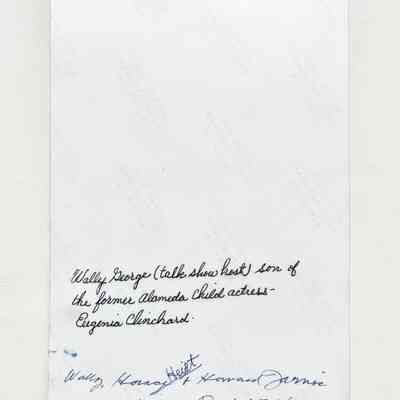 Wally George (talk show host) son of
the former Alameda Child actress-
Eugenia Clinchard.
Heist
Wally, Horace & Howard Jarvis